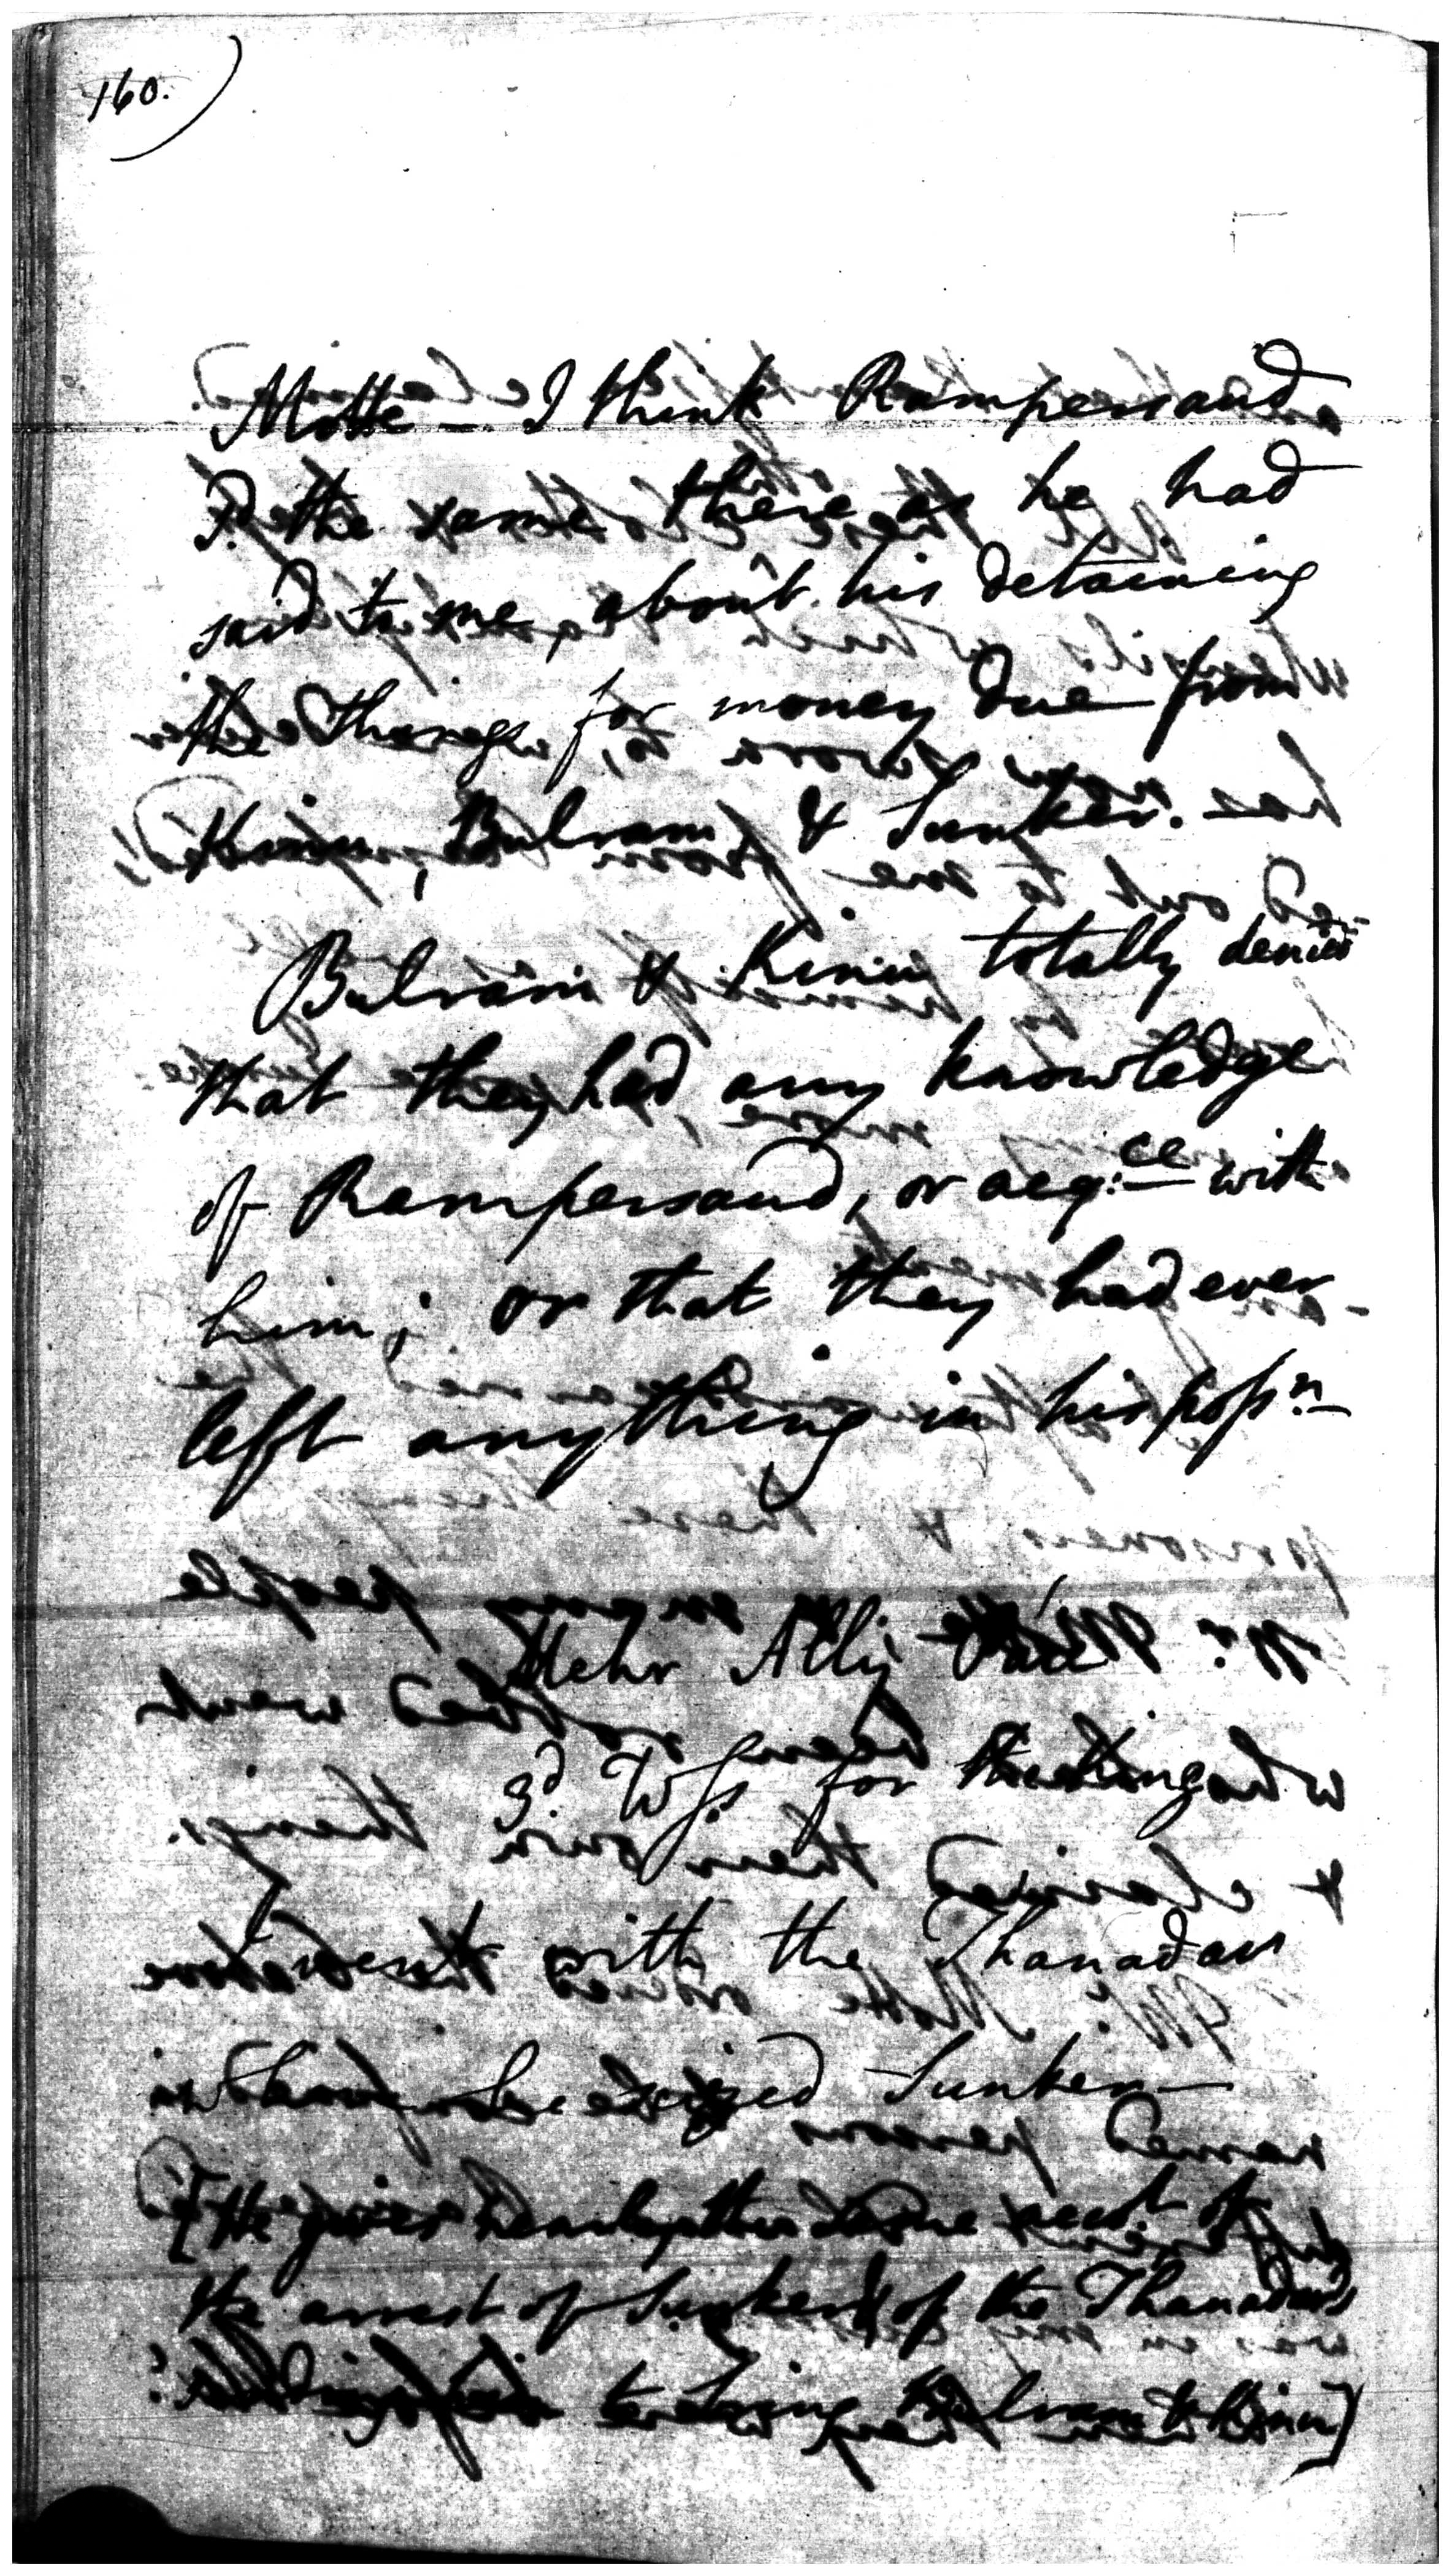 160.)
Motte — I think Rampersaud
sd. the same there as he had
said to me, about his detaining
the things for money due from
Kinu, Bulram & Sunker. —
Bulram & Kinu totally denied
that they had any knowledge
of Rampersaud, or acq:ce with
him; or that they had ever
left anything in his possn.
Mehr Ally
3d. Wss for the King
I went with the Thanadar
when he seized Sunker —
[He gives the same acct. of
the arrest of Sunker & of the Thanadar's
to bring Bulram & Kinu]